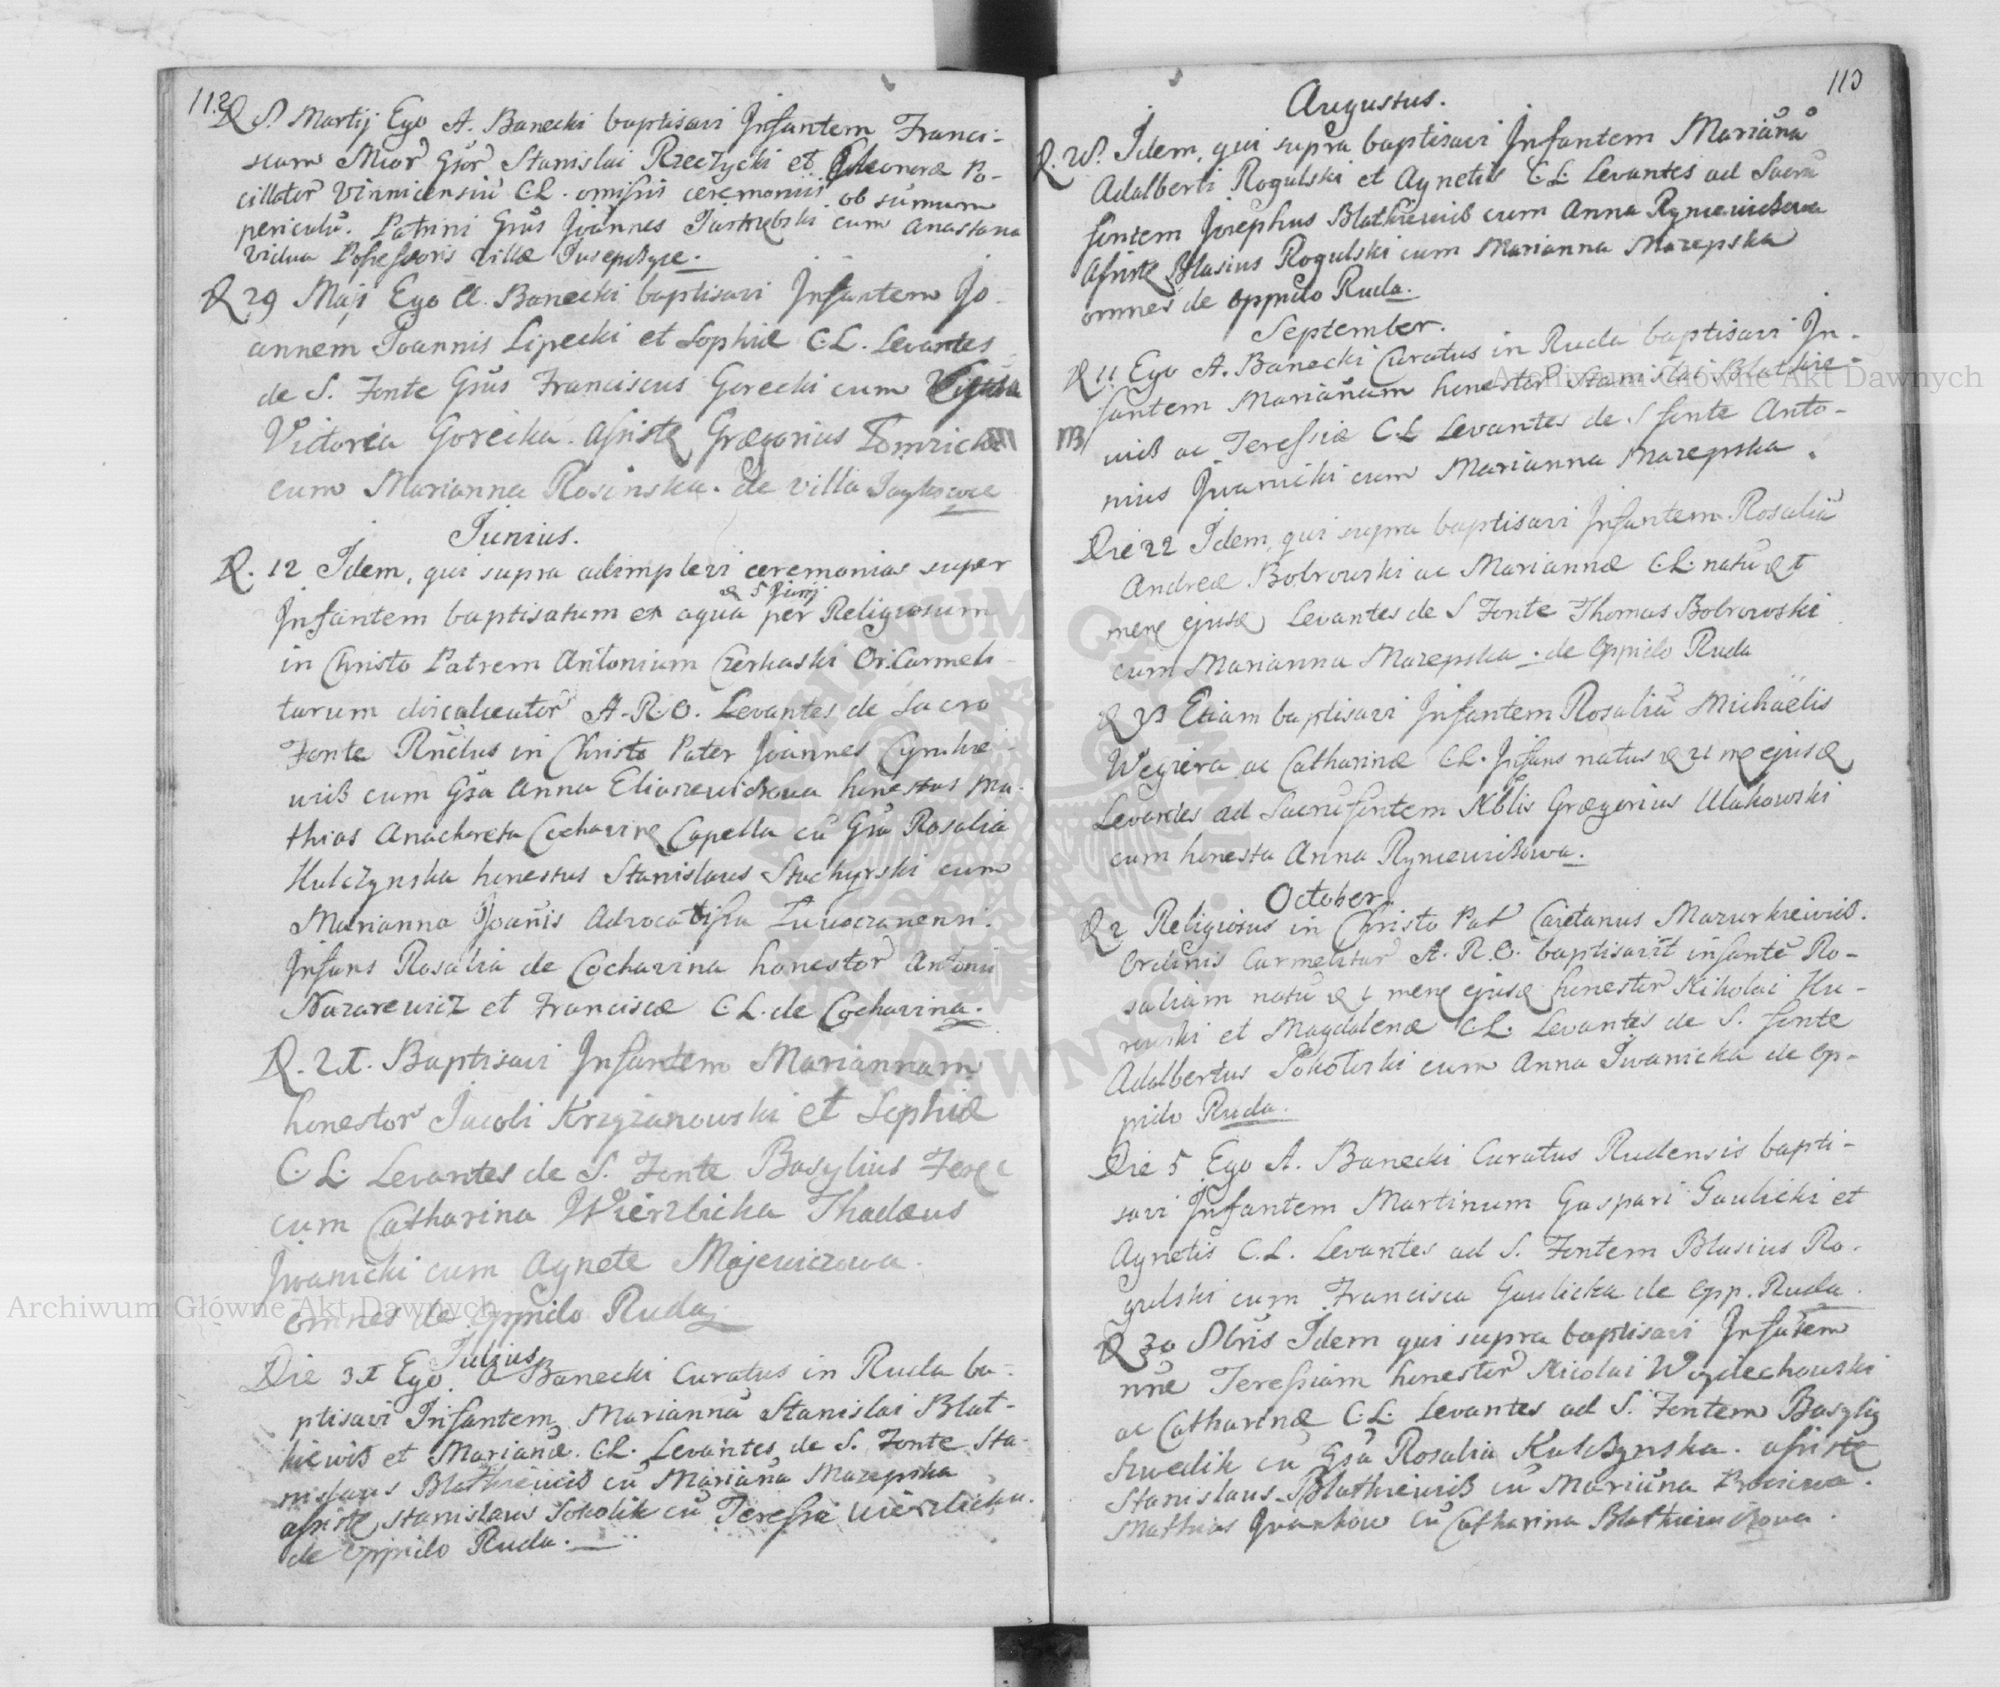 112
D 8. Martij Ego A. Banecki baptisavi Infantem Franci-
scum Gsor Stanislai Rzeczycki et Eleonoræ Po-
cillator Vinnicensiū C.L. omissis ceremoniis ob sumum
periculū. Patrini Gsus Joannes Jastrzębski cum Anastasia
vidua Possessoris villæ
D 29 Maji Ego A. Banecki baptisavi Infantem Jo-
annem Joannis Lipecki et Sophiæ C.L. Levantes
de S. Fonte Gsus Franciscus Gorecki cum
Victoria Gorecka. Assistẽ Grægorius
cum Marianna Rosinska. de villa
Junius.
D. 12 Idem, qui supra adimplevi ceremonias super
D 5 Junij
Infantem baptisatum ex aqua per Religiosum
in Christo Patrem Antonium Czerkaski Or. Carmeli-
tarum discalceator A.R.O. Levantes de Sacro
Fonte Rñdus in Christo Pater Joannes Cynkie-
wiß cum Gsa Anna Eliaszewiczowa honestus Ma-
thias Anachoreta Cochavinẽ Capella cū Gsa Rosalia
Kulczynska honestus Stanislaus Stachyrski cum
Marianna Joañis Advocatissa
Infans Rosalia de Cochavina honestor Antonii
Nazarewicz et Franciscæ C.L. de Cochavina.
D. 21. Baptisavi Infantem Mariannam
honestor Jacobi Krzyżanowski et Sophiæ
C.L. Levantes de S. Fonte Basylius
cum Catharina Wierzbicka Thadæus
Iwanicki cum Agnete Majewiczowa.
omnes de oppido Ruda
Julius
Die 31 Ego A Banecki Curatus in Ruda ba-
ptisavi Infantem Mariannū Stanislai Blat-
kiewiß et Marianæ C.L. Levantes de S. Fonte Sta-
nislaus Blatkiewiß cū Mariāna Mazepska
assistẽ Stanislaus Sokolik cū Teressa Wierzbicka.
de oppido Ruda.
113
Augustus.
D. 28. Idem, qui supra baptisavi Infantem Mariānā
Adalberti Rogulski et Agnetis C.L. Levantes ad Sacrū
fontem Josephus Blatkiewiß cum Anna Rymewißowa
Assistẽ Blasius Rogulski cum Marianna Mazepska
omnes de oppido Ruda.
September.
D 11 Ego A. Banecki Curatus in Ruda baptisavi In-
fantem Mariānam honestor Stanislai Blatkie-
NB
wiß ac Teressiæ C.L Levantes de S fonte Anto-
nius Iwanicki cum Marianna Mazepska.
Die 22 Idem, qui supra baptisavi Infantem Rosaliā
Andreæ Bobrowski ac Mariannæ C.L. natū D 1
mens ejusd Levantes de S Fonte Thomas Bobrowski
cum Marianna Mazepska. de Oppido Ruda
D 23 Etiam baptisavi Infantem Rosaliā Michaëlis
Wegiera ac Catharinæ C.L. Infans natus D 21 ejusd
Levantes ad Sacrū fontem Nblis Grægorius Ulakowski
cum honesta Anna Rymewißowa.
October.
D 2 Religiosus in Christo Pat Caietanus Mazurkiewiß.
Ordinis Carmelitar A.R.O. baptisavit infantē Ro-
saliam natū D 1 mens ejusd honestor Nikolai Hu-
rowski et Magdalenæ C.L. Levantes de S. fonte
Adalbertus Sokołoski cum Anna Iwanicka de Op-
pido Ruda.
Die 5 Ego A. Banecki Curatus Rudensis bapti-
savi Infantem Martinum Gaspari Gaulicki et
Agnetis C.L. Levantes ad S. Fontem Blasius Ro-
gulski cum Francisca Gaulicka de Opp. Ruda.
D 30 8bris Idem qui supra baptisavi Infātem
nñe Teressiam honestor Nicolai Woyciechowski
ac Catharinæ C.L. Levantes ad S. Fontem Basylig
Szwedik cū Gsa Rosalia Kulczynska. assistẽ
Stanislaus Blatkiewiß cū Mariāna
Mathias Iwankow cū Catharina Blatkiewißowa.
Archiwum Główne Akt Dawnych
Archiwum Główne Akt Dawnych